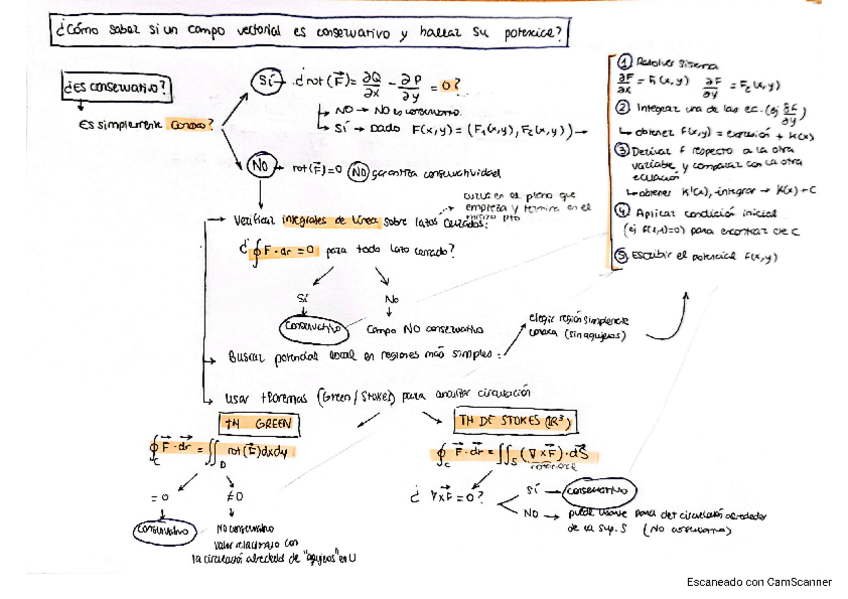 ¿Cómo saber si un campo vectorial es conservativo y hallar su potencial?
¿Es conservativo?
Es simplemente conexo?
Sí → ¿rot(F⃗) = ∂Q/∂x − ∂P/∂y = 0?
→ NO → NO es conservativo.
→ Sí → Dado F(x,y) = (F₁(x,y), F₂(x,y)) →
NO → rot(F⃗)=0 NO garantiza conservatividad
Verificar integrales de línea sobre lazos cerrados:
curvas en el plano que
empieza y termina en el
mismo pto
¿ ∮ F·dr = 0 para todo lazo cerrado?
Sí
No
Conservativo
Campo NO conservativo
Buscar potencial local en regiones más simples:
elegir región simplemente
conexa (sin agujeros)
Usar teoremas (Green/Stokes) para circulación
TH GREEN
∮_C F⃗·dr⃗ = ∬_D rot(F⃗)dxdy
= 0
≠0
Conservativo
No conservativo
con
la circulación alrededor de "agujeros" en U
TH DE STOKES (ℝ³)
∮_C F⃗·dr⃗ = ∬_S (∇×F⃗)·dS⃗
rotacional
¿ ∇×F⃗ = 0?
Sí → Conservativo
NO → puede usarse para det circulación alrededor
de la sup. S (No conservativa)
① Resolver sistema
∂F/∂x = F₁(x,y) ∂F/∂y = F₂(x,y)
② Integrar una de las ec. (ej ∂F/∂y)
↳ obtener F(x,y) = expresión + K(x)
③ Derivar F respecto a la otra
variable, y comparar con la otra
ecuación
↳ obtener K'(x), integrar → K(x) + C
④ Aplicar condición inicial
(ej F(1,1)=0) para encontrar cte C
⑤ Escribir el potencial F(x,y)
Escaneado con CamScanner